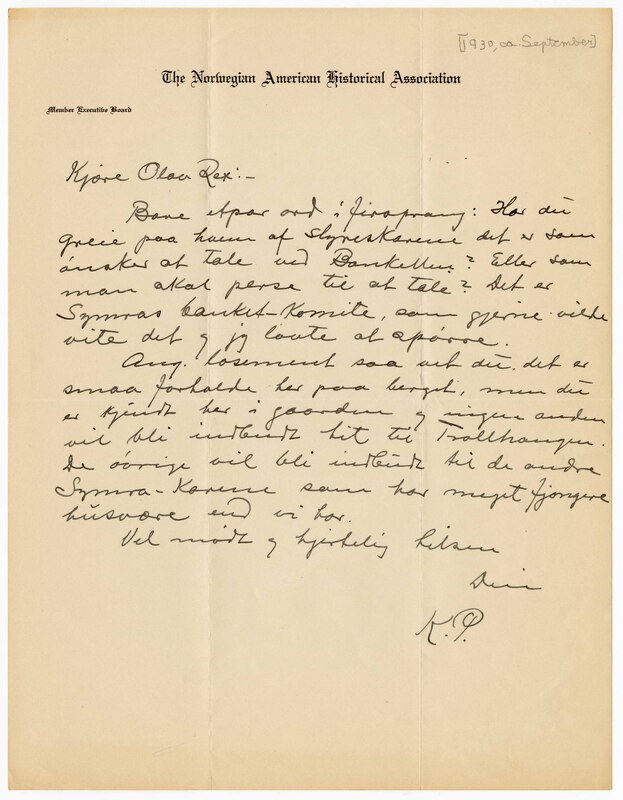 [1930, ca. September]
The Norwegian American Historical Association
Member Executive Board
Kjære Olav Rex:-
Bare etpar ord i firsprang: Har du
greie paa hvem af styreskarene det er som
ønsker at tale ved Banketten? Eller som
man skal perse til at tale? Det er
Symras banket-Komite, som gjerne vilde
vite det og jeg lovte at spørre.
Ang. losement saa vet du, det er
smaa forholde her paa berget, men du
er kjendt her i gaarden og ingen anden
vil bli indbudt hit til Trollhaugen.
De øvrige vil bli indbudt til de andre
Symra-Karene som har meget fjongere
husvære end vi har.
Vel mødt og hjertelig hilsen
Din
K.P.